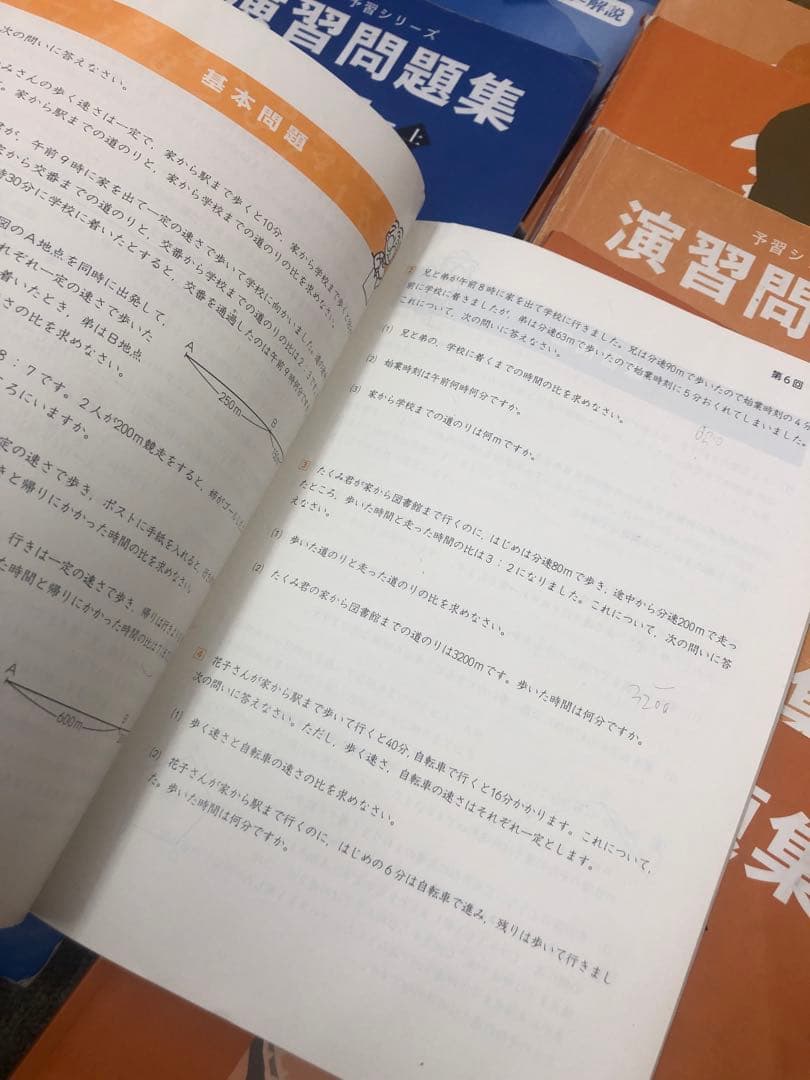 予習シリーズ
演習問題集
上
解説
予習シ
演習問
集
題集
基本問題
次の問いに答えなさい。
みさんの歩く速さは一定で，家から駅まで歩くと10分，家から学校まで歩くと
す。家から駅までの道のりと，家から学校までの道のりの比を求めなさい。
君が，午前9時に家を出て一定の速さで歩いて学校に向かいました。
家から交番までの道のりと，交番から学校までの道のりの比は2：3です。
時30分に学校に着いたとすると，交番を通過したのは午前9時何分です
図のA地点を同時に出発して，
れぞれ一定の速さで歩いた
着いたとき，弟はB地点
さの比を求めなさい。
A
250m
B
8：7です。2人が200m競走をすると，姉がゴールし
ころにいますか。
定の速さで歩き，ポストに手紙を入れると，
きと帰りにかかった時間の比を求めなさい。
，行きは一定の速さで歩き，帰りは行きより
た時間と帰りにかかった時間の比は
A
600m
B
第6回
兄と弟が午前8時に家を出て学校に行きました。兄は分速90mで歩いたので始業時刻の4分
前に学校に着きましたが，弟は分速63mで歩いたので始業時刻に5分おくれてしまいました。
これについて，次の問いに答えなさい。
(1) 兄と弟の，学校に着くまでの時間の比を求めなさい。
(2) 始業時刻は午前何時何分ですか。
(3) 家から学校までの道のりは何mですか。
3 たくみ君が家から図書館まで行くのに，はじめは分速80mで歩き，途中から分速200mで走っ
たところ，歩いた時間と走った時間の比は3：2になりました。これについて，次の問いに答
えなさい。
(1) 歩いた道のりと走った道のりの比を求めなさい。
(2) たくみ君の家から図書館までの道のりは3200mです。歩いた時間は何分ですか。
3200
花子さんが家から駅まで歩いて行くと40分，自転車で行くと16分かかります。これについて，
次の問いに答えなさい。ただし，歩く速さ，自転車の速さはそれぞれ一定とします。
(1) 歩く速さと自転車の速さの比を求めなさい。
(2) 花子さんが家から駅まで行くのに，はじめの6分は自転車で進み，残りは歩いて行きまし
た。歩いた時間は何分ですか。